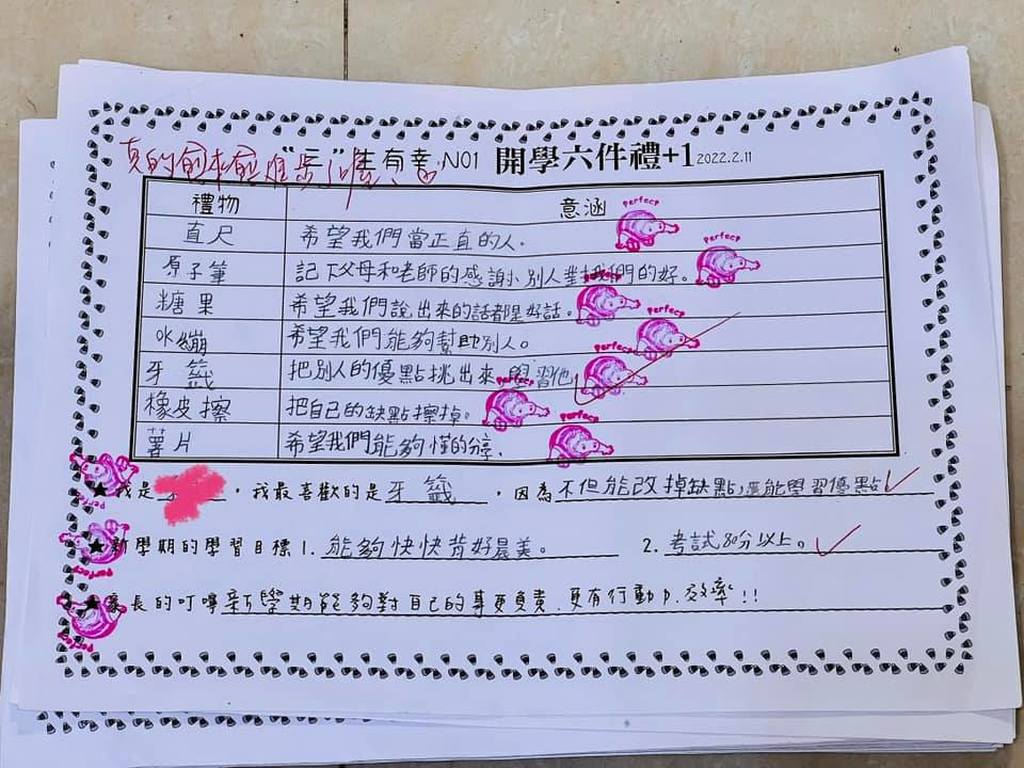 "三"生有幸 NO1 開學六件禮+1 2022.2.11
真的
禮物 意涵
直尺 希望我們當正直的人。
原子筆 記下父母和老師的感謝小別人對我們的好。
糖果 希望我們說出來的話都是好話。
OK繃 希望我們能夠幫助別人。
牙籤 把別人的優點挑出來,學習他
橡皮擦 把自己的缺點擦掉。
薯片 希望我們能夠懂的分享。
Perfect
Perfect
Perfect
Perfect
Perfect
Perfect
★我是 ,我最喜歡的是牙籤,因為不但能改掉缺點,還能學習優點
★新學期的學習目標1. 能夠快快背好晨美。 2. 考試80分以上。
★家長的叮嚀新學期能夠對自己的事更負責、更有行動力、效率!!
Perfect
Perfect
Perfect